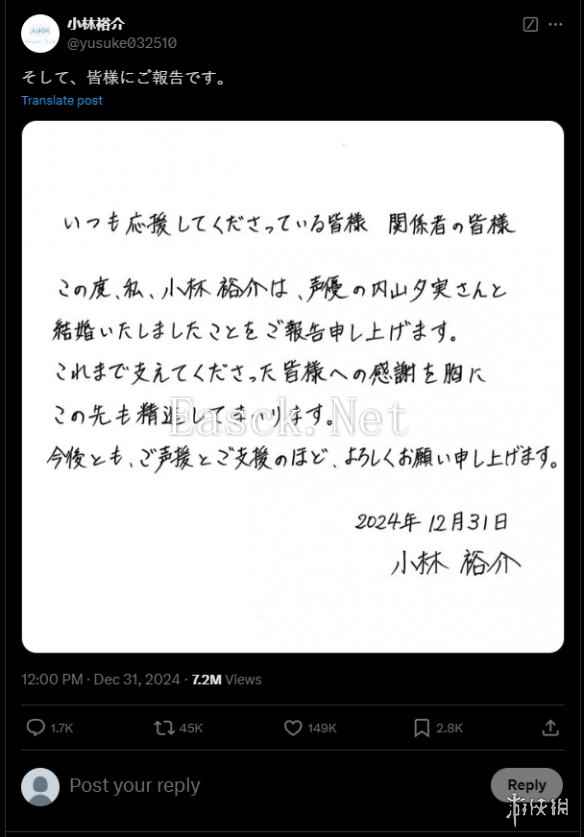 小林裕介
@yusuke032510
そして、皆様にご報告です。
Translate post
いつも応援してくださっている皆様 関係者の皆様
この度、私、小林裕介は、声優の内山夕実さんと
結婚いたしましたことをご報告申し上げます。
これまで支えてくださった皆様への感謝を胸に
この先も精進してまいります。
Easck.Net
今後とも、ご声援とご支援のほど、よろしくお願い申し上げます。
2024年12月31日
小林 裕介
12:00 PM · Dec 31, 2024 · 7.2M Views
1.7K 45K 149K 2.8K
Post your reply
Reply
游侠网